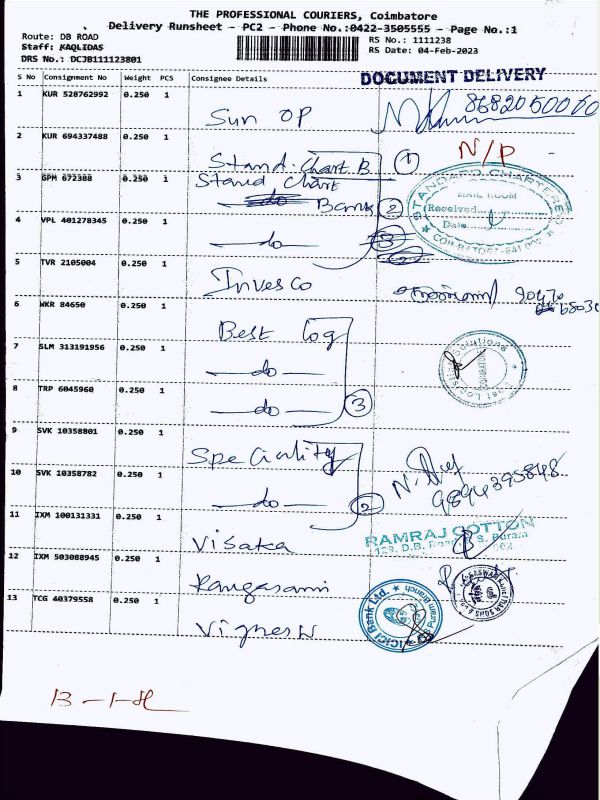 THE PROFESSIONAL COURIERS, Coimbatore
Delivery Runsheet - PC2 - Phone No.:0422-3505555 - Page No.:1
Route: DB ROAD
RS No.: 1111238
Staff: KAQLIDAS
RS Date: 04-Feb-2023
DRS No.: DCJB111123801
DOCUMENT DELIVERY
S No Consignment No Weight PCS Consignee Details
1 KUR 528762992 0.250 1 Sun OP 8682050060
2 KUR 694337488 0.250 1 Stand. Chart. B 1 N/P
3 GPM 672388 0.250 1 Stand Chart Bank 2
STANDARD CHARTERED
MAIL ROOM
Received
Date
4 VPL 401278345 0.250 1 do
5 TVR 2105004 0.250 1 Invesco
6 WKR 84650 0.250 1 Best Log
7 SLM 313191956 0.250 1 do
8 TRP 6045960 0.250 1 do 3
9 SVK 10358801 0.250 1 Speciality
10 SVK 10358782 0.250 1 do 2 9894395848
11 IXM 100131331 0.250 1 Visaka
RAMRAJ COTTON
12 IXM 503088945 0.250 1 Rangasami
13 TCG 40379558 0.250 1 Vignesh
ICICI Bank Ltd.